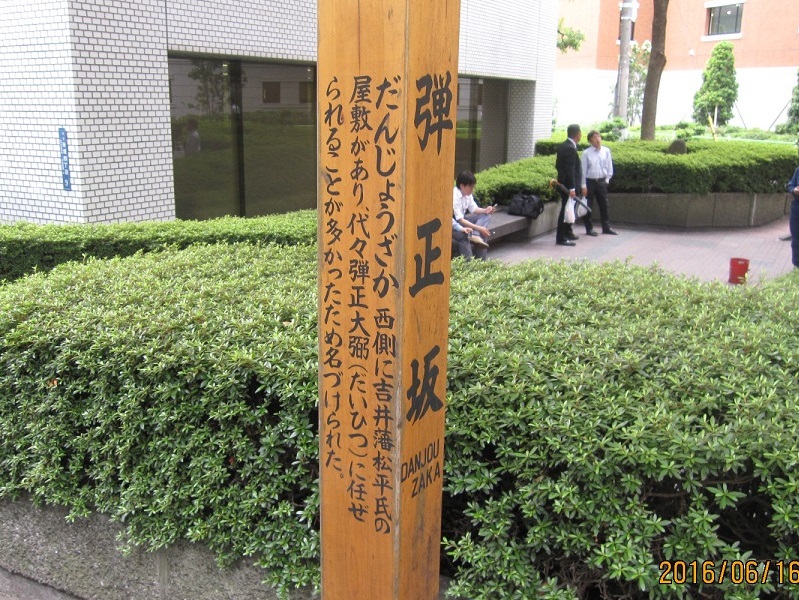 弾正坂
DANJOU
ZAKA
だんじょうざか 西側に吉井藩松平氏の
屋敷があり、代々弾正大弼(だいひつ)に任ぜ
られることが多かったため名づけられた。
2016/06/16